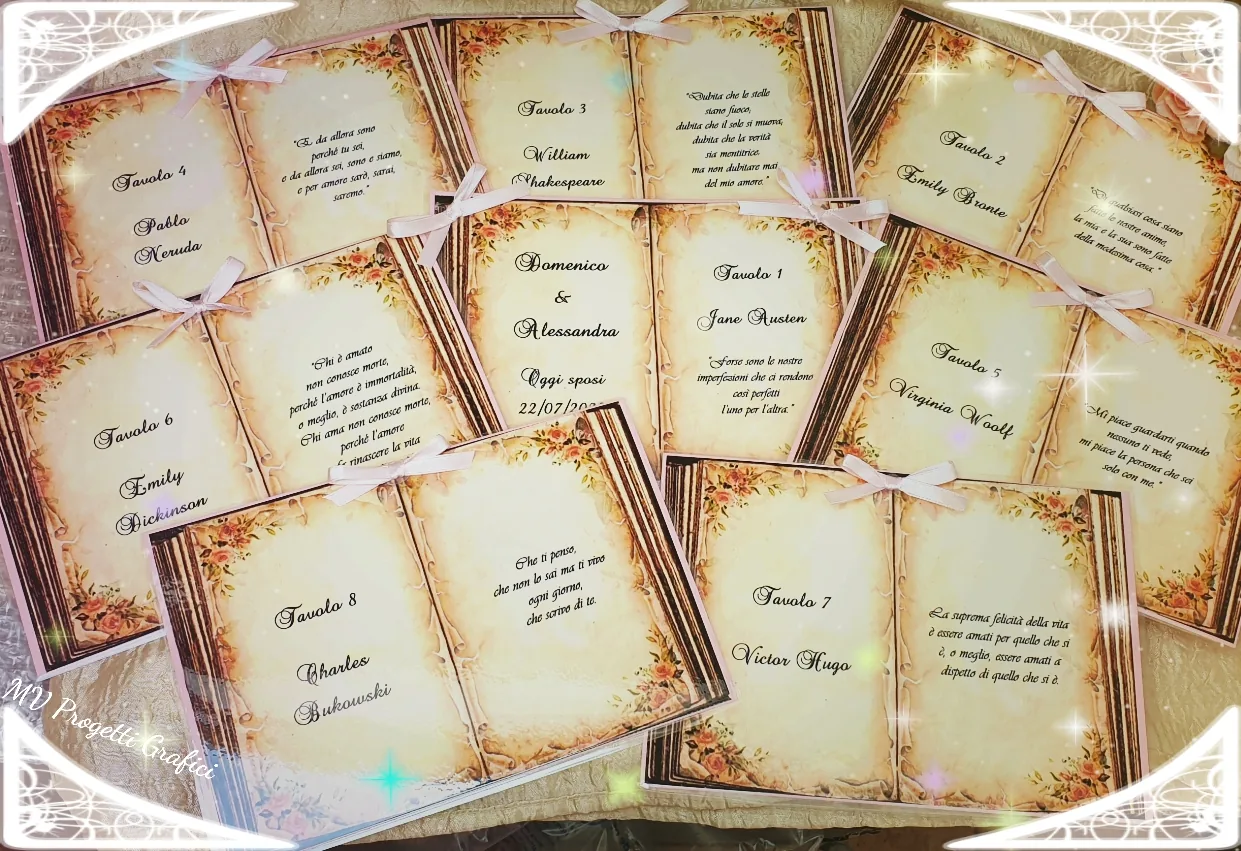 Tavolo 4
Pablo
Neruda
"E da allora sono
perché tu sei,
e da allora sei, sono e siamo,
e per amore sarò, sarai,
saremo."
Tavolo 3
William
Shakespeare
"Dubita che le stelle
siano fuoco,
dubita che il sole si muova,
dubita che la verità
sia mentitrice.
ma non dubitare mai
del mio amore."
Tavolo 2
Emily Bronte
cosa siano
le nostre anime,
la mia e la sua sono fatte
della medesima cosa."
Tavolo 6
Emily
Dickinson
"Chi è amato
non conosce morte,
perché l'amore è immortalità,
o meglio, è sostanza divina.
Chi ama non conosce morte,
perché l'amore
fa rinascere la vita
Domenico
&
Alessandra
Oggi sposi
22/07/202
Tavolo 1
Jane Austen
"Forse sono le nostre
imperfezioni che ci rendono
così perfetti
l'uno per l'altra."
Tavolo 5
Virginia Woolf
"Mi piace guardarti quando
nessuno ti vede,
mi piace la persona che sei
solo con me."
Tavolo 8
Charles
Bukowski
Che ti penso,
che non lo sai ma ti vivo
ogni giorno,
che scrivo di te.
Tavolo 7
Victor Hugo
La suprema felicità della vita
è essere amati per quello che si
è, o meglio, essere amati a
dispetto di quello che si è.
MV Progetti Grafici